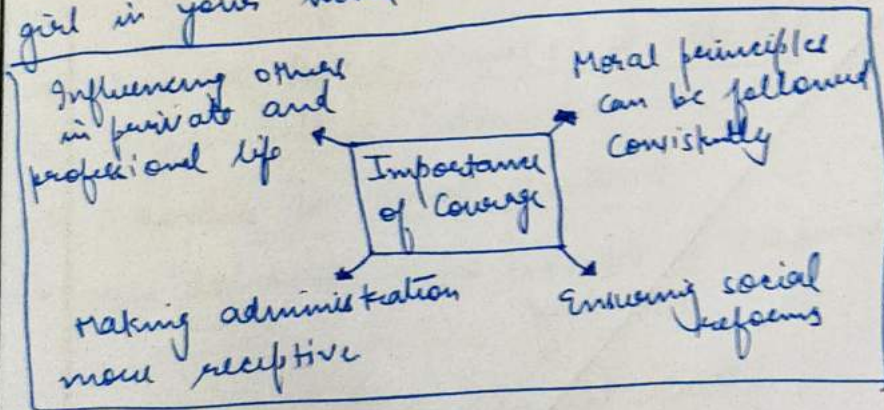 girl in your
Influencing others
in private and
professional life
Moral principles
can be followed
consistently
Importance
of Courage
Making administration
more receptive
Ensuring social
reforms